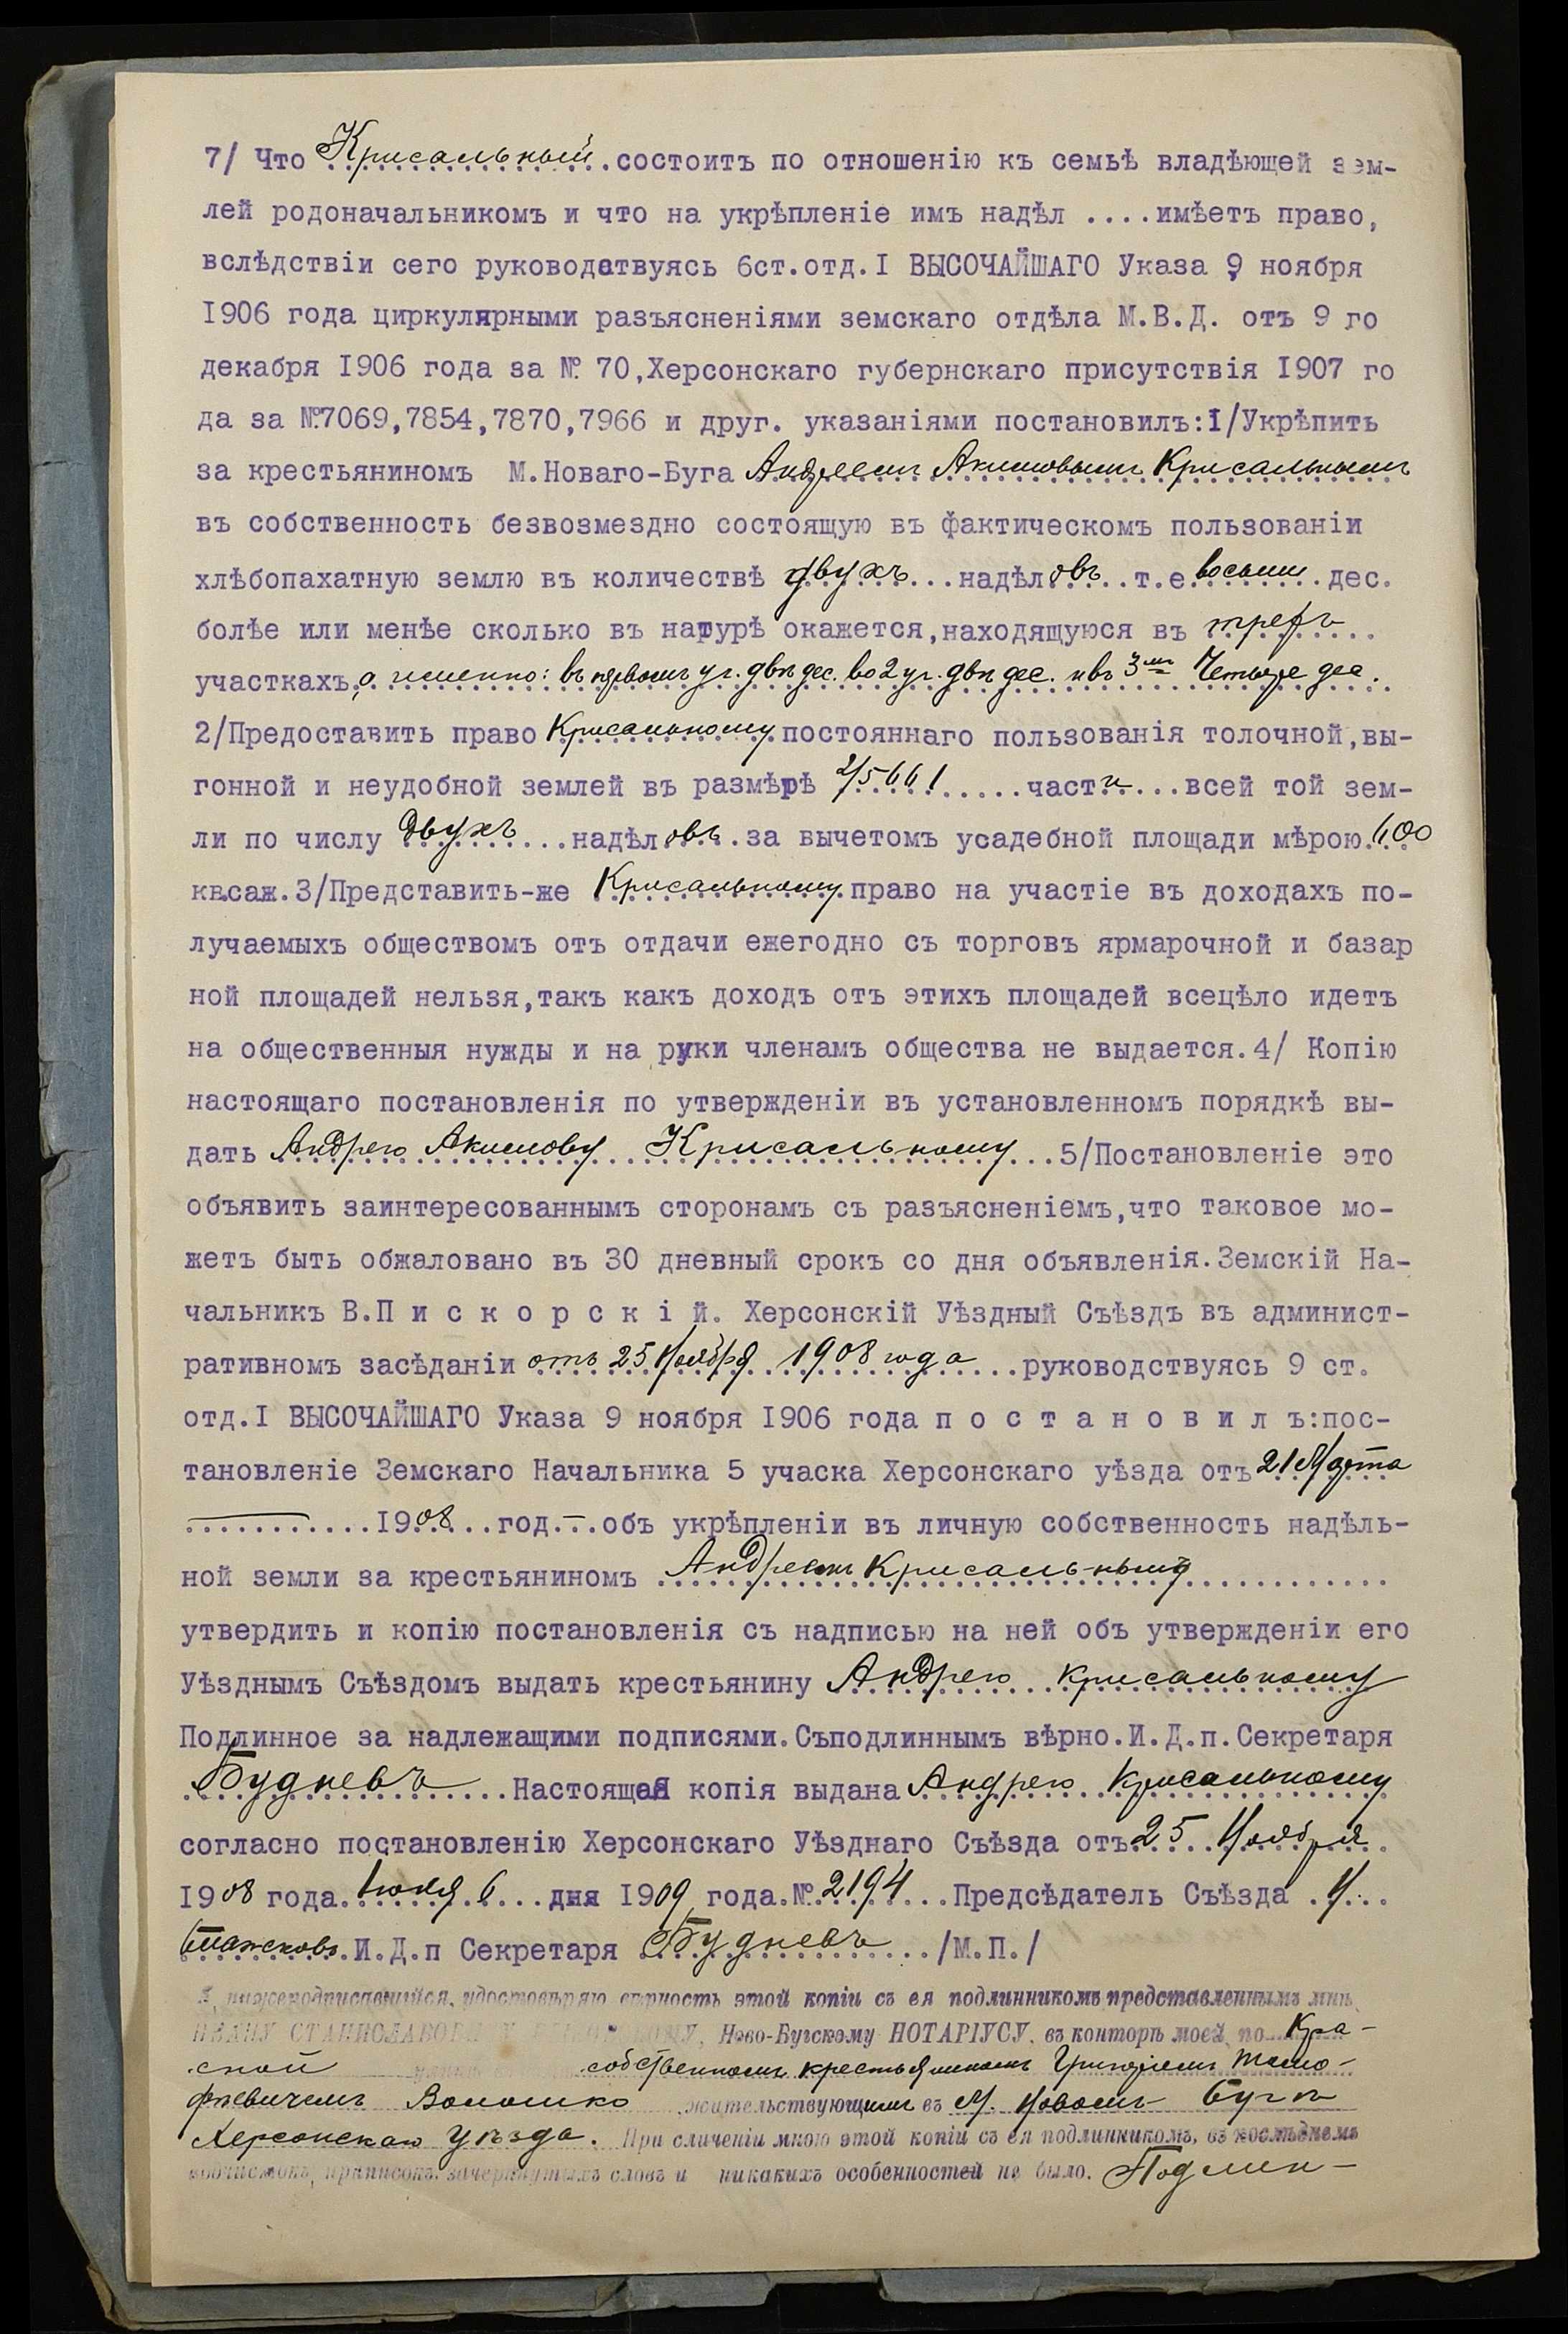 7/ Что Крисальный.состоитъ по отношенію къ семьѣ владѣющей зем-
лей родоначальникомъ и что на укрѣпленіе имъ надѣл ....имѣетъ право,
вслѣдствіи сего руководствуясь 6ст.отд.I ВЫСОЧАЙШАГО Указа 9 ноября
I906 года циркулярными разъясненіями земскаго отдѣла М.В.Д. отъ 9 го
декабря I906 года за № 70,Херсонскаго губернскаго присутствія I907 го
да за №7069,7854,7870,7966 и друг. указаніями постановилъ:I/Укрѣпить
за крестьяниномъ М.Новаго-Буга Андреемъ Акимовымъ Крисальнымъ
въ собственность безвозмездно состоящую въ фактическомъ пользованіи
хлѣбопахатную землю въ количествѣ двухъ...надѣловъ..т.е.восьми.дес.
болѣе или менѣе сколько въ натурѣ окажется,находящуюся въ трехъ
участкахъ,а именно: въ первомъ уч. двѣ дес. во 2 уч. двѣ дес. и въ 3мъ Четыре дес.
2/Предоставить право Крисальному.постояннаго пользованія толочной,вы-
гонной и неудобной землей въ размѣрѣ 2/5661.....части....всей той зем-
ли по числу двухъ...надѣловъ.за вычетомъ усадебной площади мѣрою.600
кв.саж.3/Представить-же Крисальному.право на участіе въ доходахъ по-
лучаемыхъ обществомъ отъ отдачи ежегодно съ торговъ ярмарочной и базар
ной площадей нельзя,такъ какъ доходъ отъ этихъ площадей всецѣло идетъ
на общественныя нужды и на руки членамъ общества не выдается.4/ Копію
настоящаго постановленія по утвержденіи въ установленномъ порядкѣ вы-
дать Андрею Акимову Крисальному...5/Постановленіе это
объявить заинтересованнымъ сторонамъ съ разъясненіемъ,что таковое мо-
жетъ быть обжаловано въ 30 дневный срокъ со дня объявленія.Земскій На-
чальникъ В.П и с к о р с к і й. Херсонскій Уѣздный Съѣздъ въ админист-
ративномъ засѣданіи отъ 25 Ноября 1908 года...руководствуясь 9 ст.
отд.I ВЫСОЧАЙШАГО Указа 9 ноября I906 года п о с т а н о в и л ъ:пос-
тановленіе Земскаго Начальника 5 учаска Херсонскаго уѣзда отъ 21 Марта
...........I908...год.-..объ укрѣпленіи въ личную собственность надѣль-
ной земли за крестьяниномъ Андреемъ Крисальнымъ............
утвердить и копію постановленія съ надписью на ней объ утвержденіи его
Уѣзднымъ Съѣздомъ выдать крестьянину Андрею Крисальному
Подлинное за надлежащими подписями.Съподлиннымъ вѣрно.И.Д.п.Секретаря
Будневъ....Настоящая копія выдана Андрею Крисальному
согласно постановленію Херсонскаго Уѣзднаго Съѣзда отъ 25 Ноября
I908 года.Іюня 6...дня I909 года.№ 2194...Предсѣдатель Съѣзда .И...
.И.Д.п Секретаря Будневъ..../М.П./
Я, нижеподписавшійся, удостовѣряю вѣрность этой копіи съ ея подлинникомъ представленнымъ мнѣ,
ИВАНУ СТАНИСЛАВОВИЧУ Ново-Бугскому НОТАРІУСУ, въ конторѣ моей, по Кра-
сной собственномъ крестьяниномъ Григоріемъ Тимо-
фѣевичемъ Волошко жительствующимъ въ М. Новомъ Бугѣ
Херсонскаго Уѣзда. При сличеніи мною этой копіи съ ея подлинникомъ, въ послѣднемъ
подчистокъ, приписокъ, зачеркнутыхъ словъ и никакихъ особенностей не было. Подлин-